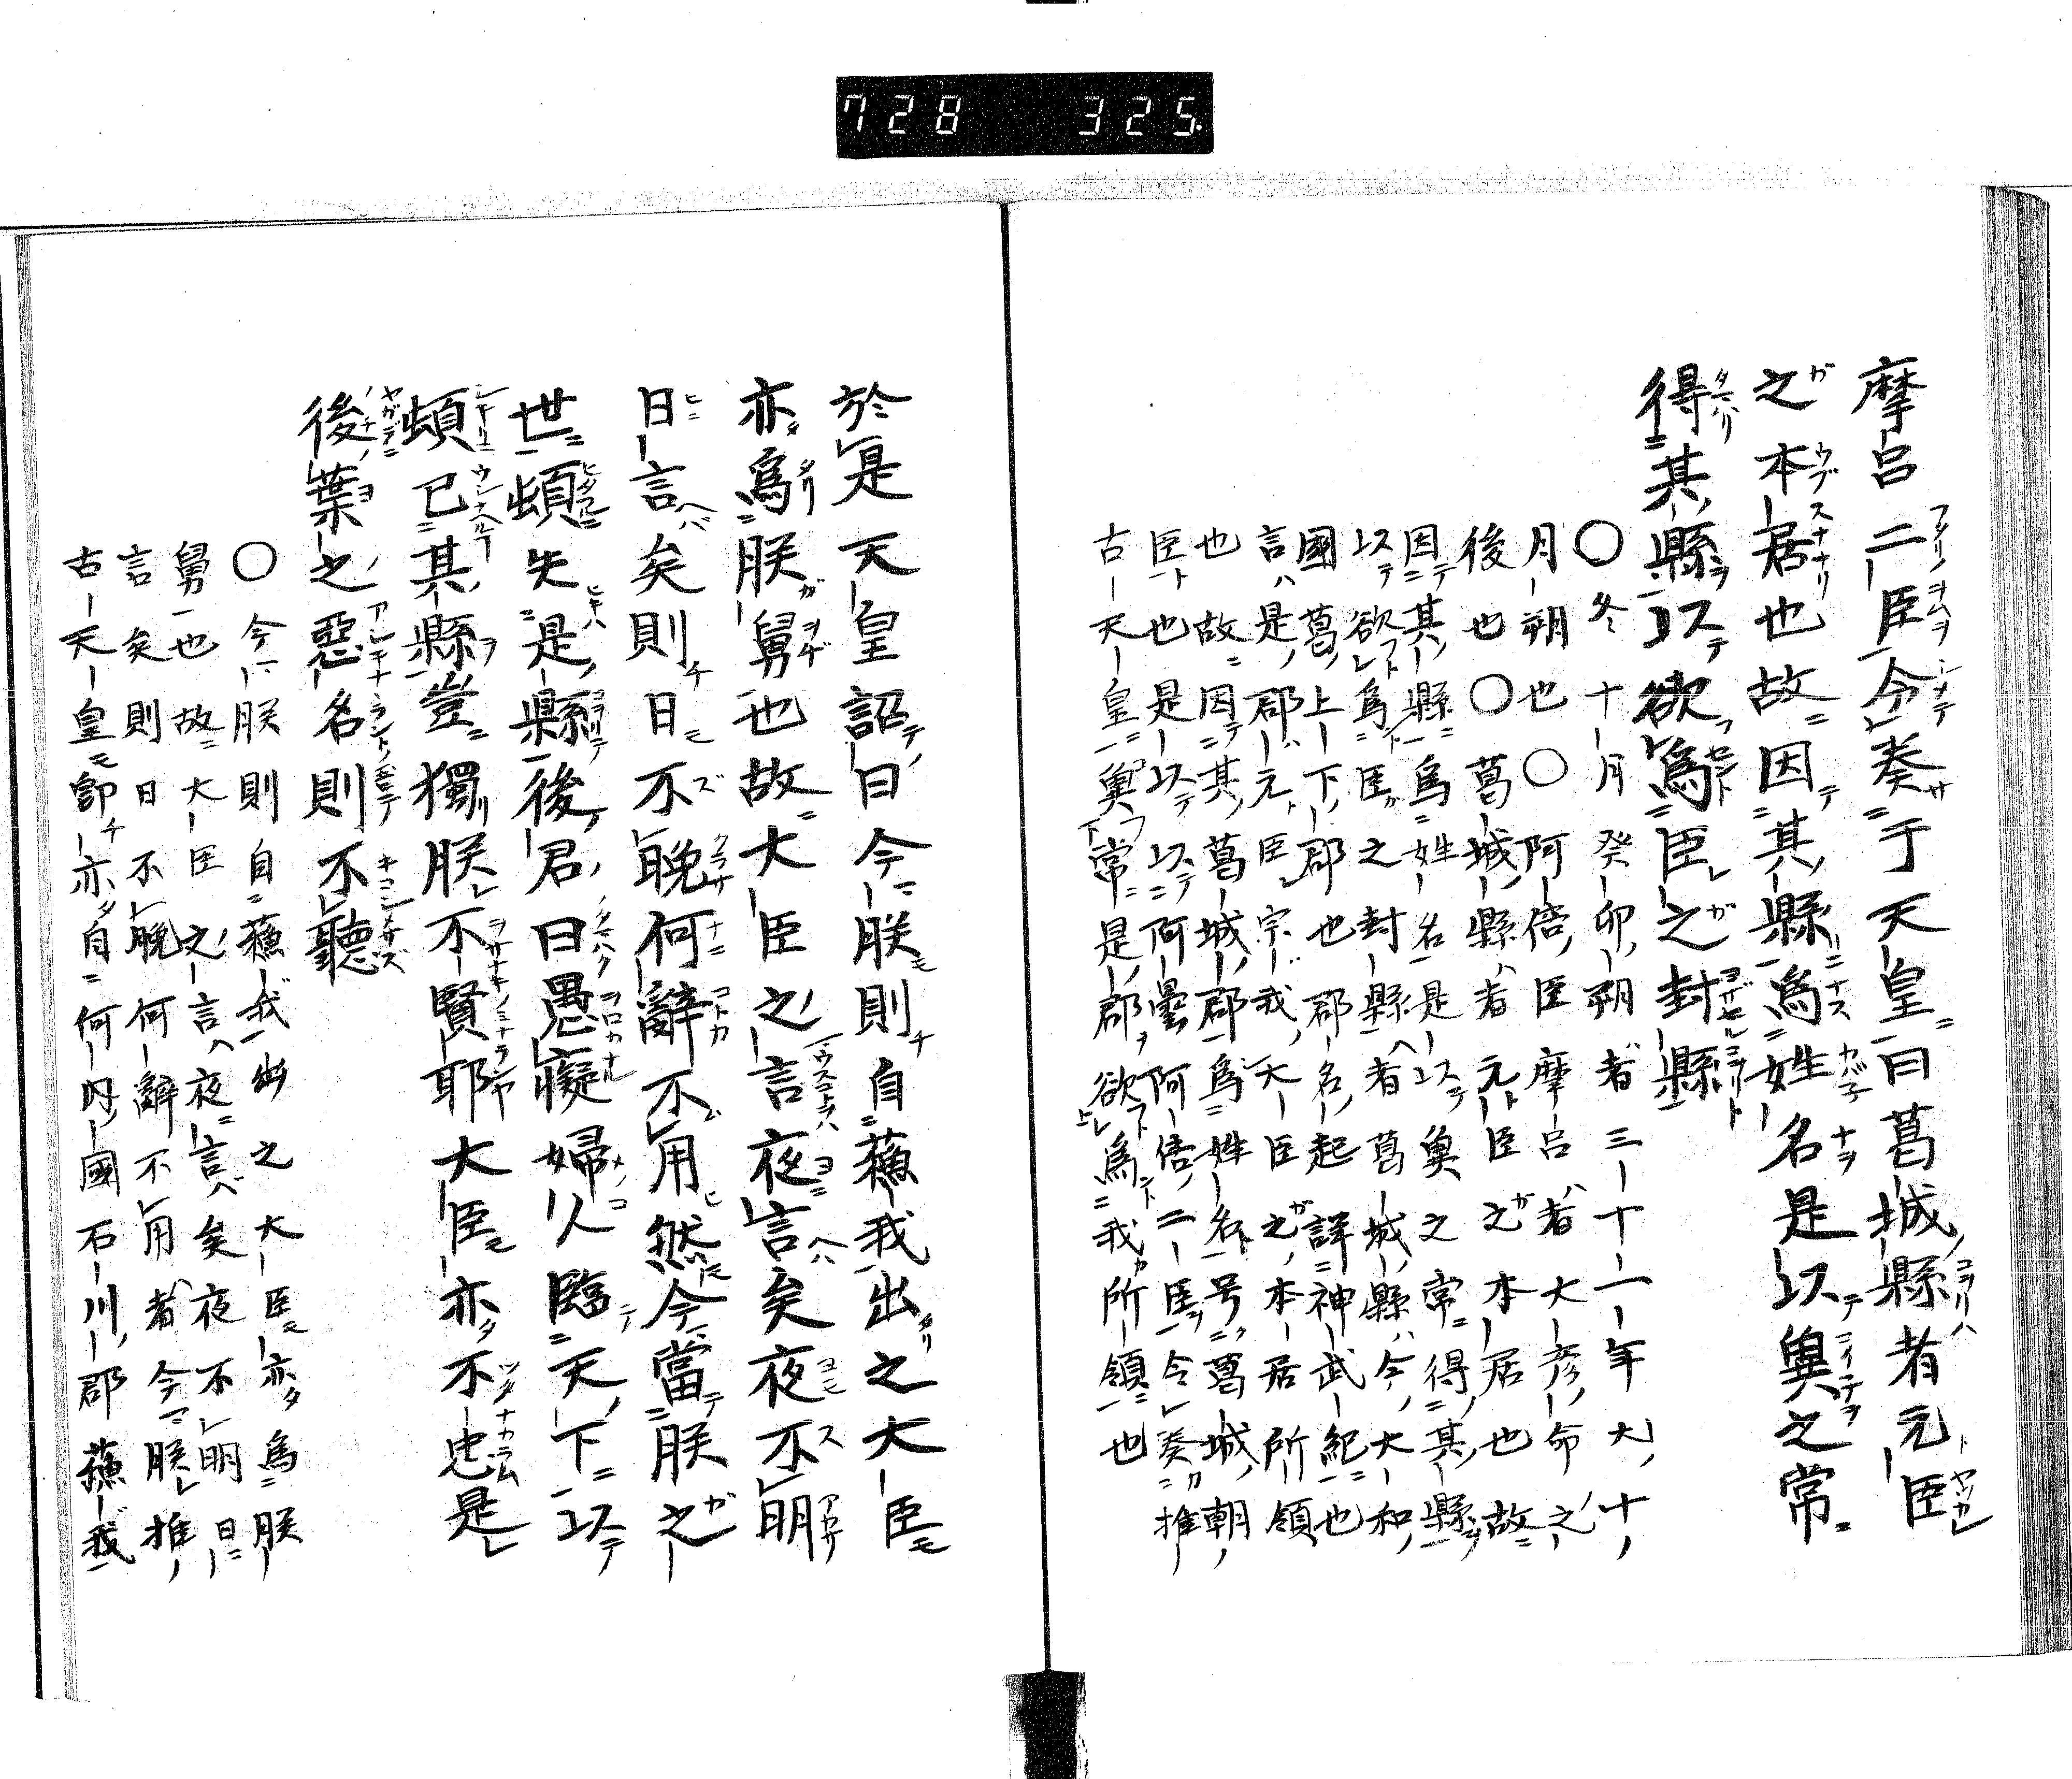 728 325
摩呂二臣令奏于天皇曰葛城縣者元臣
之本居也故因其縣為姓名是以冀之常
得其縣以欲為臣之封縣
〇冬十月癸卯朔者三十一年大十
月朔也〇阿倍臣摩呂者大彦命之
後也〇葛城縣者元臣之本居也故
因其縣為姓名是以冀之常得其縣
以欲為臣之封縣者葛城縣今大和
國葛上下郡也郡名起詳神武紀也
言是郡元臣宗我大臣之本居所領
也故因其葛城郡為姓名号葛城朝
臣也是以以阿曇阿倍二臣令奏推
古天皇冀常是郡欲為我所領也
於是天皇詔曰今朕則自蘓我出之大臣
亦為朕舅也故大臣之言夜言矣夜不明
日言矣則日不晩何辭不用然今當朕之
世頓失是縣後君曰愚癡婦人臨天下以
頓亡其縣豈獨朕不賢耶大臣亦不忠是
後葉之惡名則不聽
〇今朕則自蘓我出之大臣亦為朕
舅也故大臣之言夜言矣夜不明日
言矣則日不晩何辭不用者今朕推
古天皇即亦自河内國石川郡蘓我